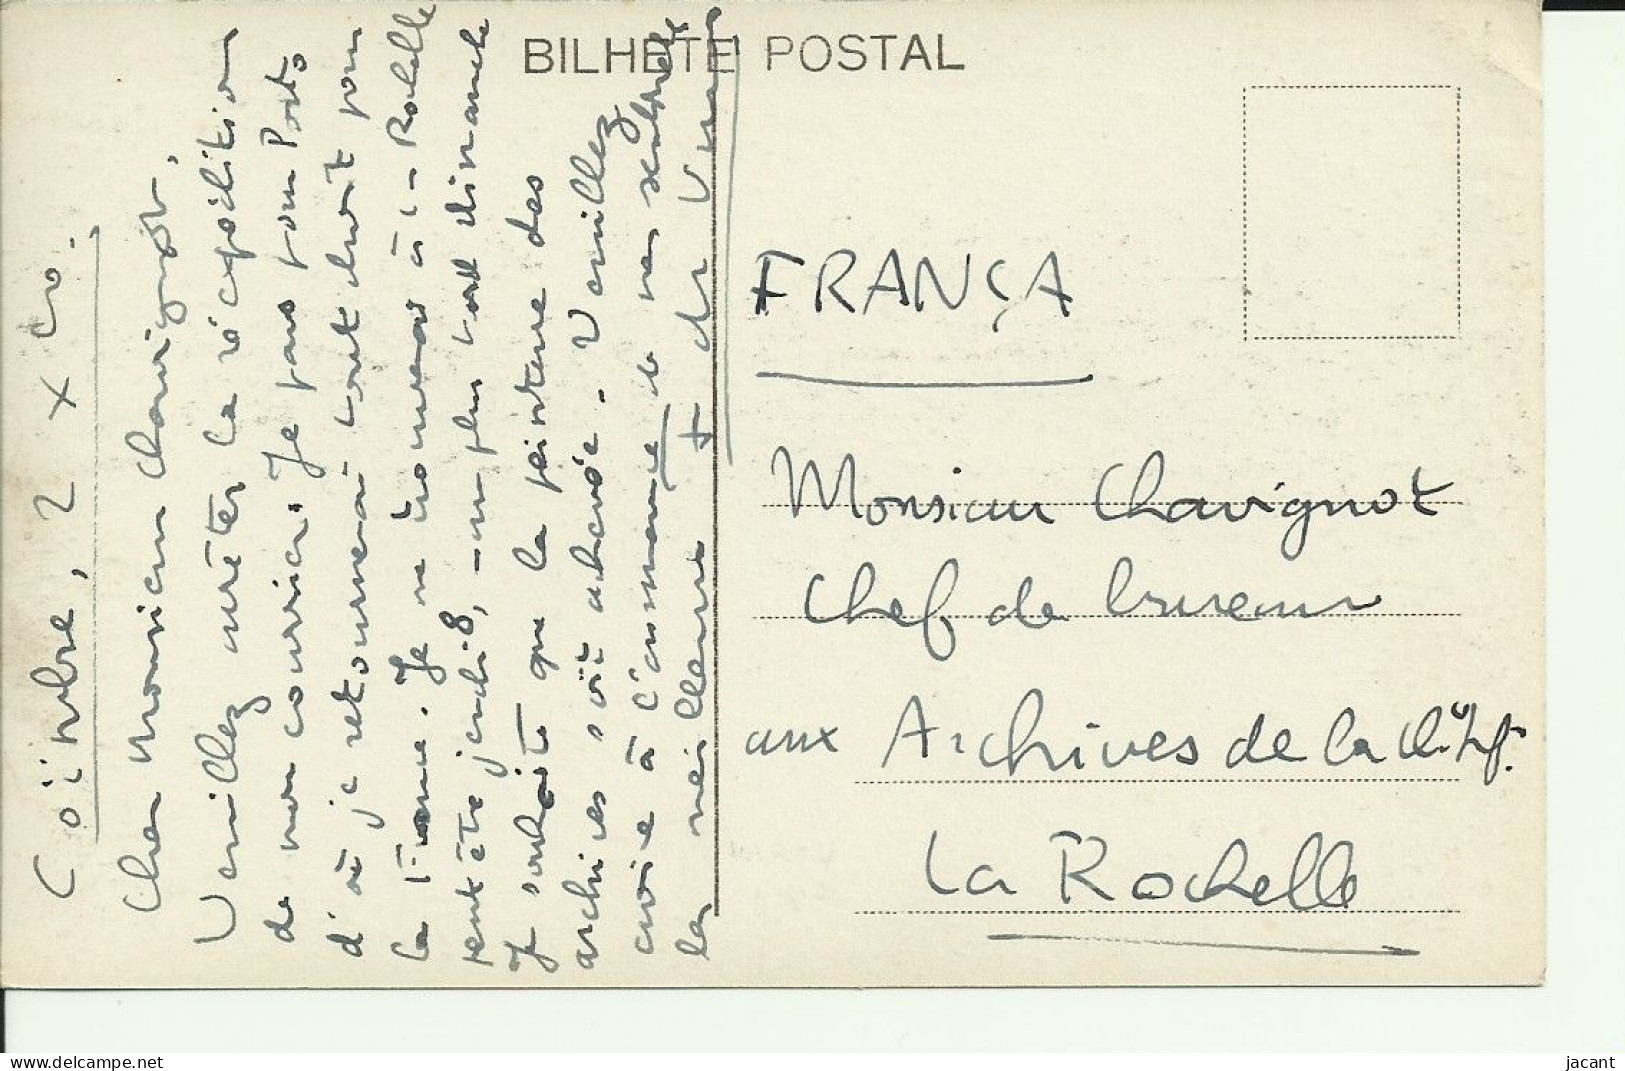 BILHETE POSTAL
Coïmbre, 2 X
Cher Monsieur Chavignot,
Veuillez arrêter la réexpédition
de mon courrier. Je pars pour Porto
d'où je retournerai tout droit pour
la France. Je me trouverai à La Rochelle
peut-être jeudi 8, un plus tard dimanche
Je souhaite que la peinture des
archives soit achevée. Veuillez
croire à l'assurance de mes
les meilleurs
FRANÇA
Monsieur Chavignot
Chef de bureau
aux Archives de la
La Rochelle
www.delcampe.net
jacant